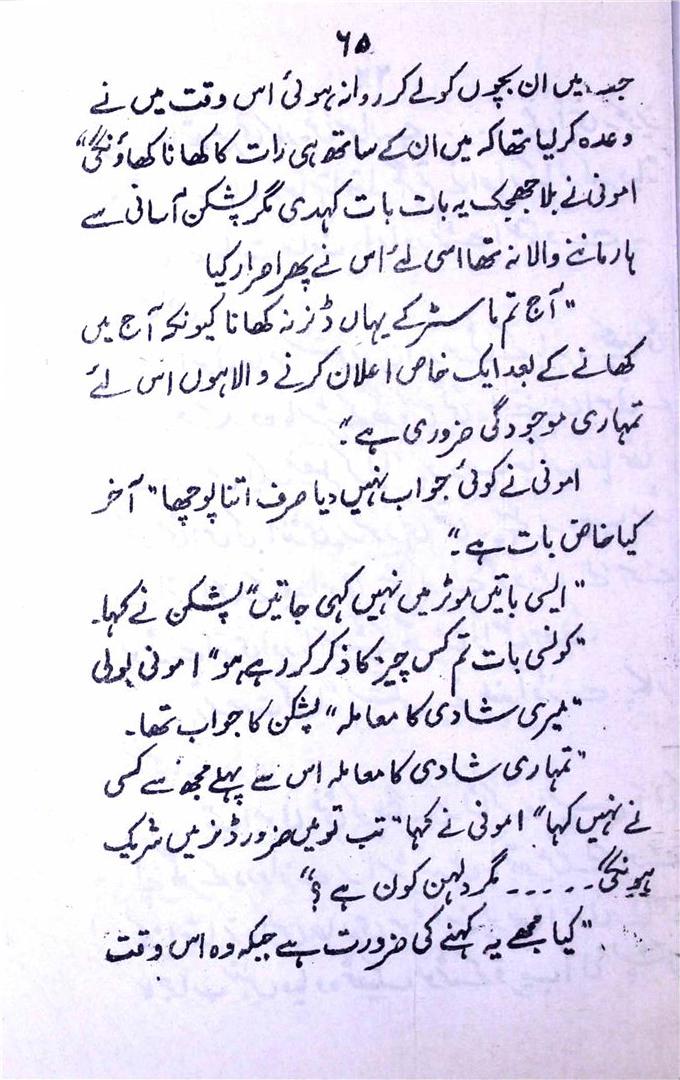 ۶۵
جب میں ان بچوں کو لے کر روانہ ہوئی اس وقت میں نے
وعدہ کر لیا تھا کہ میں ان کے ساتھ ہی رات کا کھانا کھاؤنگی"
امونی نے بلا جھجک یہ بات بات کہدی مگر پشکن آسانی سے
ہار ماننے والا نہ تھا اسی لئے اس نے پھر اصرار کیا
"آج تم ماسٹر کے یہاں ڈنر نہ کھانا کیونکہ آج میں
کھانے کے بعد ایک خاص اعلان کرنے والا ہوں اس لئے
تمہاری موجودگی ضروری ہے"۔
امونی نے کوئی جواب نہیں دیا صرف اتنا پوچھا "آخر
کیا خاص بات ہے"۔
"ایسی باتیں موٹر میں نہیں کہی جاتیں" پشکن نے کہا۔
"کونسی بات تم کس چیز کا ذکر کر رہے ہو" امونی بولی
"میری شادی کا معاملہ" پشکن کا جواب تھا۔
"تمہاری شادی کا معاملہ اس سے پہلے مجھ سے کسی
نے نہیں کہا" امونی نے کہا "تب تو میں ضرور ڈنر میں شریک
ہونگی ۔۔۔۔۔ مگر دلہن کون ہے ؟"
"کیا مجھے یہ کہنے کی ضرورت ہے جبکہ وہ اس وقت